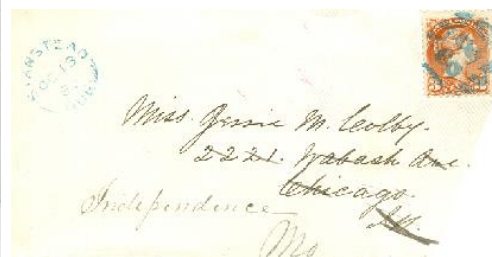 STANSTEAD
OC 13
Miss Jessie M. Colby.
2221. Wabash Ave.
Chicago.
Ill.
Independence
Mo